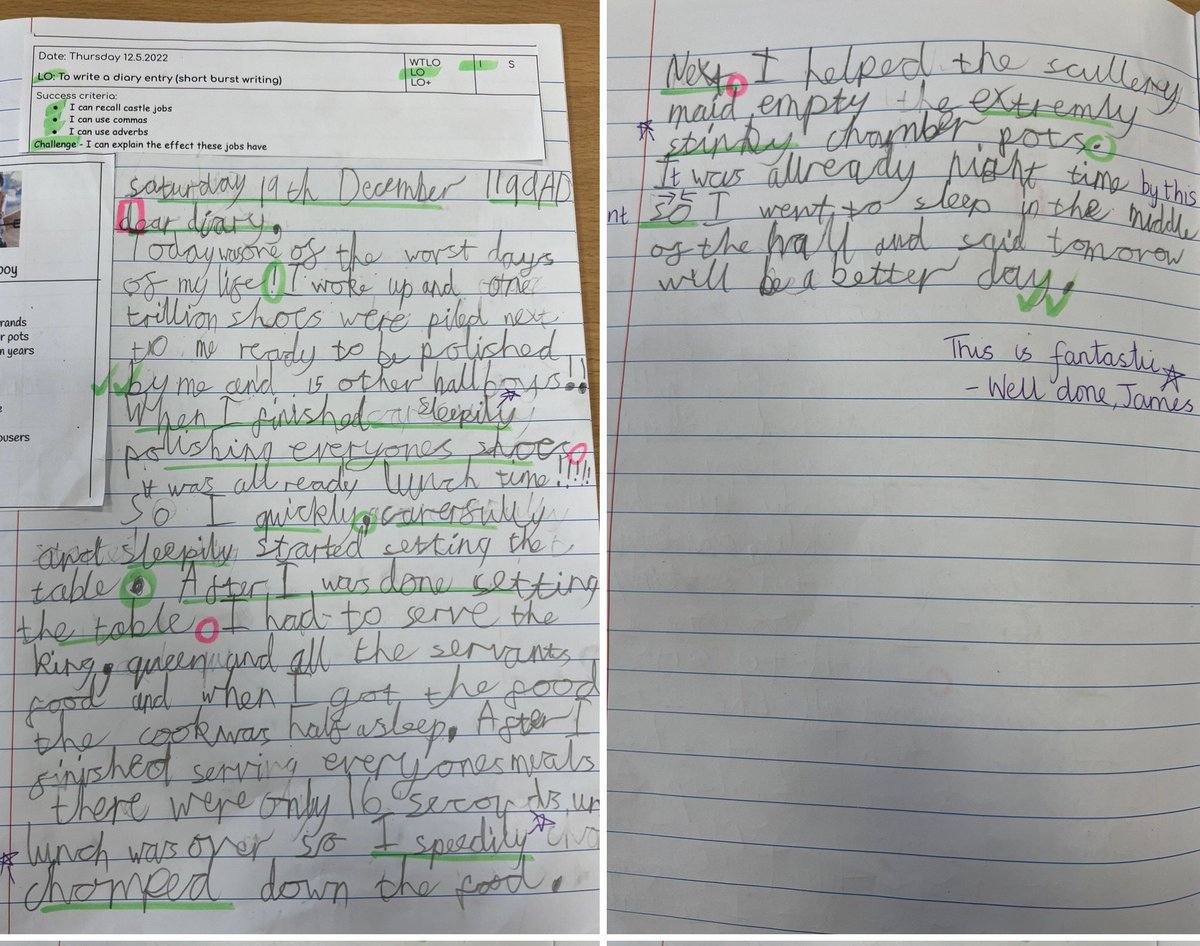 Date: Thursday 12.5.2022
WTLO
LO
LO+
I
S
LO: To write a diary entry (short burst writing)
Success criteria:
• I can recall castle jobs
• I can use commas
• I can use adverbs
Challenge - I can explain the effect these jobs have
boy
rands
r pots
n years
ousers
saturday 19th December 1199AD
dear diary,
Today was one of the worst days
of my life! I woke up and
trillion shoes were piled next
to me ready to be polished
by me and 15 other hall boys!!
When I finished sleepily
polishing everyones shoes
it was all ready lunch time!!!!
So I quickly, carerfully
and sleepily started setting the
table. After I was done setting
the table I had to serve the
king, queen and all the servants
food and when I got the food
the cook was half asleep. After I
finished serving everyones meals
there were only 16 seconds un
lunch was over so I speedily
chomped down the food.
Next, I helped the scullery
maid empty the extremly
stinky chamber pots.
It was allready night time by this
nt so I went to sleep in the middle
of the hall and said tomorow
will be a better day.
This is fantastic
- Well done, James